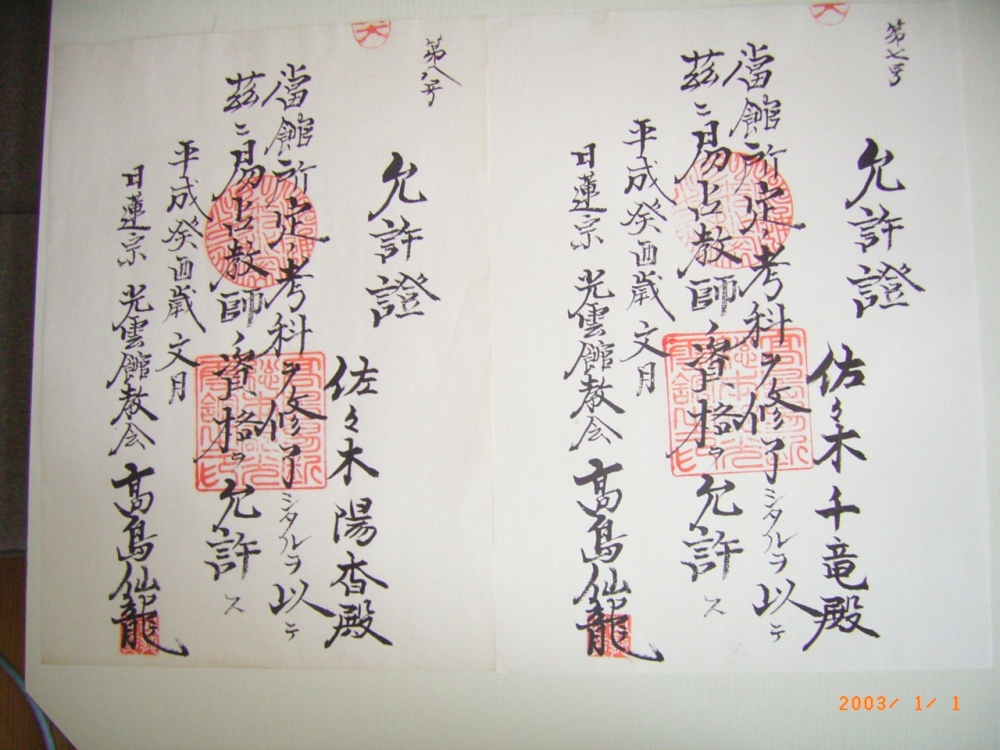 第七号
允許證
佐々木千竜殿
當館所定ノ考科ヲ修了シタルヲ以テ
茲ニ易占教師ノ資格ヲ允許ス
平成癸酉歳文月
日蓮宗 光雲館教会 高島仙龍
第八号
允許證
佐々木陽香殿
當館所定ノ考科ヲ修了シタルヲ以テ
茲ニ易占教師ノ資格ヲ允許ス
平成癸酉歳文月
日蓮宗 光雲館教会 高島仙龍
2003/ 1/ 1